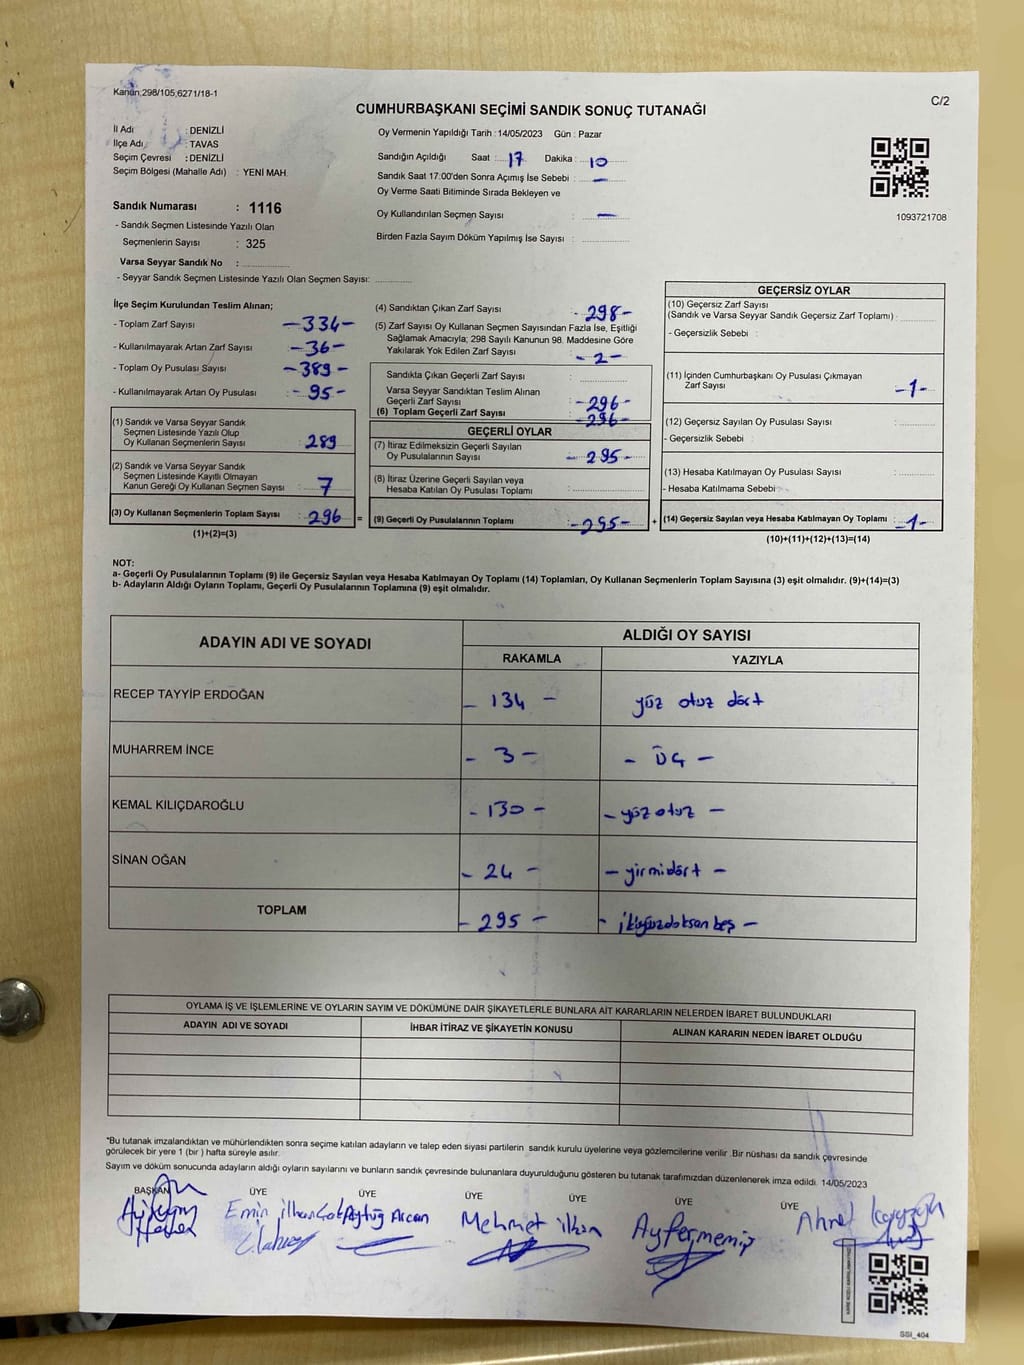 Kanun,298/105,6271/18-1
C/2
CUMHURBAŞKANI SEÇİMİ SANDIK SONUÇ TUTANAĞI
İl Adı : DENİZLİ
İlçe Adı : TAVAS
Seçim Çevresi : DENİZLİ
Seçim Bölgesi (Mahalle Adı) : YENİ MAH.
Sandık Numarası : 1116
- Sandık Seçmen Listesinde Yazılı Olan
Seçmenlerin Sayısı : 325
Varsa Seyyar Sandık No :
- Seyyar Sandık Seçmen Listesinde Yazılı Olan Seçmen Sayısı:
Oy Vermenin Yapıldığı Tarih : 14/05/2023 Gün : Pazar
Sandığın Açıldığı Saat : 17 Dakika : 10
Sandık Saat 17:00'den Sonra Açımış İse Sebebi : -
Oy Verme Saati Bitiminde Sırada Bekleyen ve
Oy Kullandırılan Seçmen Sayısı : -
Birden Fazla Sayım Döküm Yapılmış İse Sayısı :
1093721708
İlçe Seçim Kurulundan Teslim Alınan;
- Toplam Zarf Sayısı : -334-
- Kullanılmayarak Artan Zarf Sayısı : -36-
- Toplam Oy Pusulası Sayısı : -389-
- Kullanılmayarak Artan Oy Pusulası : -95-
(1) Sandık ve Varsa Seyyar Sandık
Seçmen Listesinde Yazılı Olup
Oy Kullanan Seçmenlerin Sayısı : 289
(2) Sandık ve Varsa Seyyar Sandık
Seçmen Listesinde Kayıtlı Olmayan
Kanun Gereği Oy Kullanan Seçmen Sayısı : 7
(3) Oy Kullanan Seçmenlerin Toplam Sayısı : 296
(1)+(2)=(3)
=
(4) Sandıktan Çıkan Zarf Sayısı : -298-
(5) Zarf Sayısı Oy Kullanan Seçmen Sayısından Fazla İse, Eşitliği
Sağlamak Amacıyla; 298 Sayılı Kanunun 98. Maddesine Göre
Yakılarak Yok Edilen Zarf Sayısı : -2-
Sandıkta Çıkan Geçerli Zarf Sayısı :
Varsa Seyyar Sandıktan Teslim Alınan
Geçerli Zarf Sayısı : -296-
(6) Toplam Geçerli Zarf Sayısı : -296-
GEÇERLİ OYLAR
(7) İtiraz Edilmeksizin Geçerli Sayılan
Oy Pusulalarının Sayısı : -295-
(8) İtiraz Üzerine Geçerli Sayılan veya
Hesaba Katılan Oy Pusulası Toplamı :
(9) Geçerli Oy Pusulalarının Toplamı : -295-
+
GEÇERSİZ OYLAR
(10) Geçersiz Zarf Sayısı
(Sandık ve Varsa Seyyar Sandık Geçersiz Zarf Toplamı) :
- Geçersizlik Sebebi :
(11) İçinden Cumhurbaşkanı Oy Pusulası Çıkmayan
Zarf Sayısı : -1-
(12) Geçersiz Sayılan Oy Pusulası Sayısı :
- Geçersizlik Sebebi :
(13) Hesaba Katılmayan Oy Pusulası Sayısı :
- Hesaba Katılmama Sebebi :
(14) Geçersiz Sayılan veya Hesaba Katılmayan Oy Toplamı : -1-
(10)+(11)+(12)+(13)=(14)
NOT:
a- Geçerli Oy Pusulalarının Toplamı (9) ile Geçersiz Sayılan veya Hesaba Katılmayan Oy Toplamı (14) Toplamları, Oy Kullanan Seçmenlerin Toplam Sayısına (3) eşit olmalıdır. (9)+(14)=(3)
b- Adayların Aldığı Oyların Toplamı, Geçerli Oy Pusulalarının Toplamına (9) eşit olmalıdır.
ADAYIN ADI VE SOYADI ALDIĞI OY SAYISI
RAKAMLA YAZIYLA
RECEP TAYYİP ERDOĞAN - 134 - yüz otuz dört
MUHARREM İNCE - 3 - - ÜÇ -
KEMAL KILIÇDAROĞLU - 130 - - yüz otuz -
SİNAN OĞAN - 24 - - yirmidört -
TOPLAM - 295 - - ikiyüzdoksan beş -
OYLAMA İŞ VE İŞLEMLERİNE VE OYLARIN SAYIM VE DÖKÜMÜNE DAİR ŞİKAYETLERLE BUNLARA AİT KARARLARIN NELERDEN İBARET BULUNDUKLARI
ADAYIN ADI VE SOYADI İHBAR İTİRAZ VE ŞİKAYETİN KONUSU ALINAN KARARIN NEDEN İBARET OLDUĞU
*Bu tutanak imzalandıktan ve mühürlendikten sonra seçime katılan adayların ve talep eden siyasi partilerin sandık kurulu üyelerine veya gözlemcilerine verilir .Bir nüshası da sandık çevresinde
görülecek bir yere 1 (bir ) hafta süreyle asılır.
Sayım ve döküm sonucunda adayların aldığı oyların sayılarını ve bunların sandık çevresinde bulunanlara duyurulduğunu gösteren bu tutanak tarafımızdan düzenlenerek imza edildi. 14/05/2023
BAŞKAN ÜYE ÜYE ÜYE ÜYE ÜYE ÜYE
Emin ilhan Aytuğ Arcan Mehmet ilhan Ayfer memiş Ahmet
SSI_404